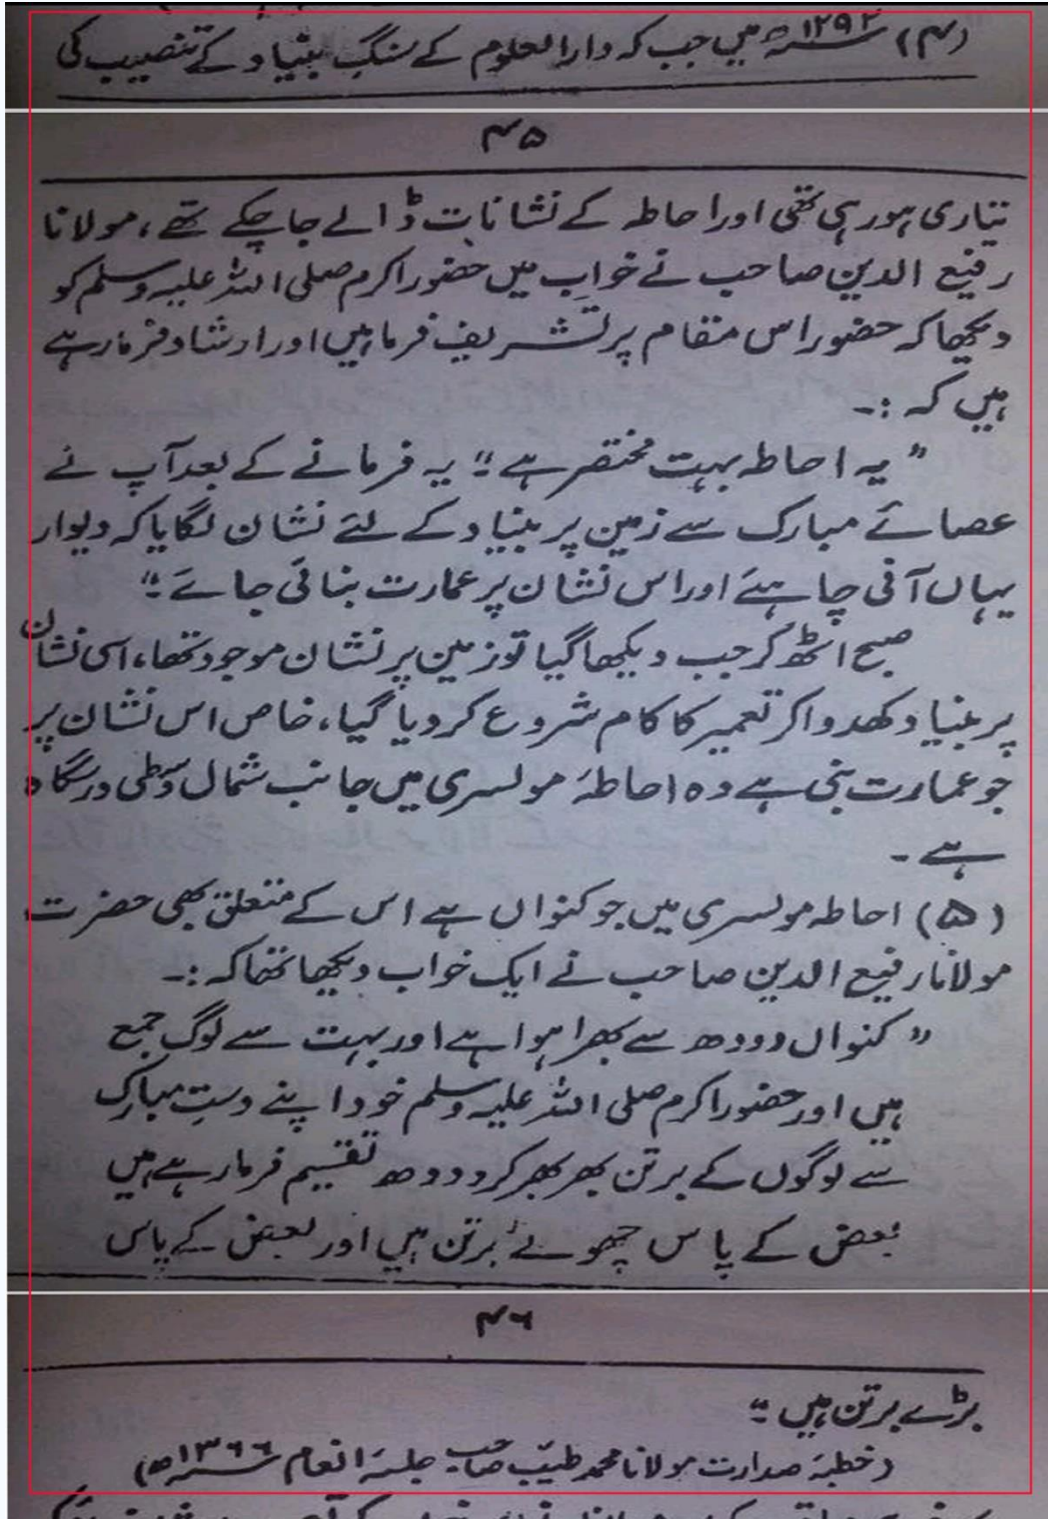 (۴) ۱۲۹۲ھ میں جب کہ دارالعلوم کے سنگِ بنیاد کے تنصیب کی
۴۵
تیاری ہو رہی تھی اور احاطہ کے نشانات ڈالے جا چکے تھے، مولانا
رفیع الدین صاحب نے خواب میں حضور اکرم صلی اللہ علیہ وسلم کو
دیکھا کہ حضور اس مقام پر تشریف فرما ہیں اور ارشاد فرما رہے
ہیں کہ :۔
"یہ احاطہ بہت مختصر ہے" یہ فرمانے کے بعد آپ نے
عصائے مبارک سے زمین پر بنیاد کے لئے نشان لگایا کہ دیوار
یہاں آنی چاہئے اور اس نشان پر عمارت بنائی جائے"
صبح اٹھ کر جب دیکھا گیا تو زمین پر نشان موجود تھا، اسی نشان
پر بنیاد کھدوا کر تعمیر کا کام شروع کر دیا گیا، خاص اس نشان پر
جو عمارت بنی ہے وہ احاطۂ مولسری میں جانب شمال وسطی درسگاہ
ہے ۔
(۵) احاطہ مولسری میں جو کنواں ہے اس کے متعلق بھی حضرت
مولانا رفیع الدین صاحب نے ایک خواب دیکھا تھا کہ :۔
"کنواں دودھ سے بھرا ہوا ہے اور بہت سے لوگ جمع
ہیں اور حضور اکرم صلی اللہ علیہ وسلم خود اپنے دستِ مبارک
سے لوگوں کے برتن بھر بھر کر دودھ تقسیم فرما رہے ہیں
بعض کے پاس چھوٹے برتن ہیں اور بعض کے پاس
۴۶
بڑے برتن ہیں"
(خطبۂ صدارت مولانا محمد طیب صاحب جلسۂ انعام ۱۳۶۶ھ)